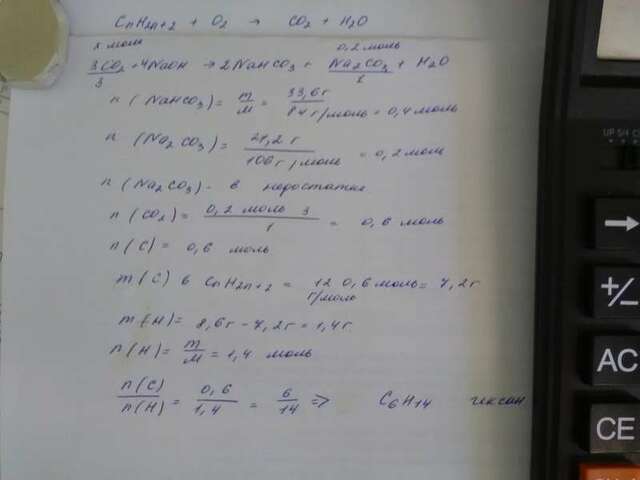 CnH2n+2 + O2 → CO2 + H2O
x моль 0,2 моль
3CO2 + 4NaOH → 2NaHCO3 + Na2CO3 + H2O
3 1
n (NaHCO3) = m/M = 33,6 г / 84 г/моль = 0,4 моль
n (Na2CO3) = 21,2 г / 106 г/моль = 0,2 моль
n (Na2CO3) - в недостатке
n (CO2) = 0,2 моль 3 / 1 = 0,6 моль
n (C) = 0,6 моль
m (C) в CnH2n+2 = 12 г/моль 0,6 моль = 7,2 г
m(H) = 8,6г - 7,2г = 1,4г.
n (H) = m/M = 1,4 моль
n(C)/n(H) = 0,6/1,4 = 6/14 => C6H14 гексан
UP 5/4
→
+/-
AC
CE